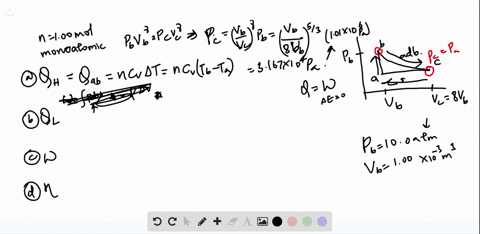 n=1.00 mol
monoatomic
P_b V_b^γ = P_c V_c^γ ⇒ P_c = (V_b/V_c)^γ P_b = (V_b/8V_b)^{5/3} (1.01×10^6 Pa)
= 3.167×10^4 Pa
(a) Q_H = Q_ab = n C_v ΔT = n C_v (T_b − T_a)
Q = W
ΔE=0
(b) Q_L
(c) W
(d) η
P_b
b
adb.
P_c = P_a
a
c
V_b
V_c = 8V_b
P_b = 10.0 atm
V_b = 1.00 ×10^-3 m^3
A